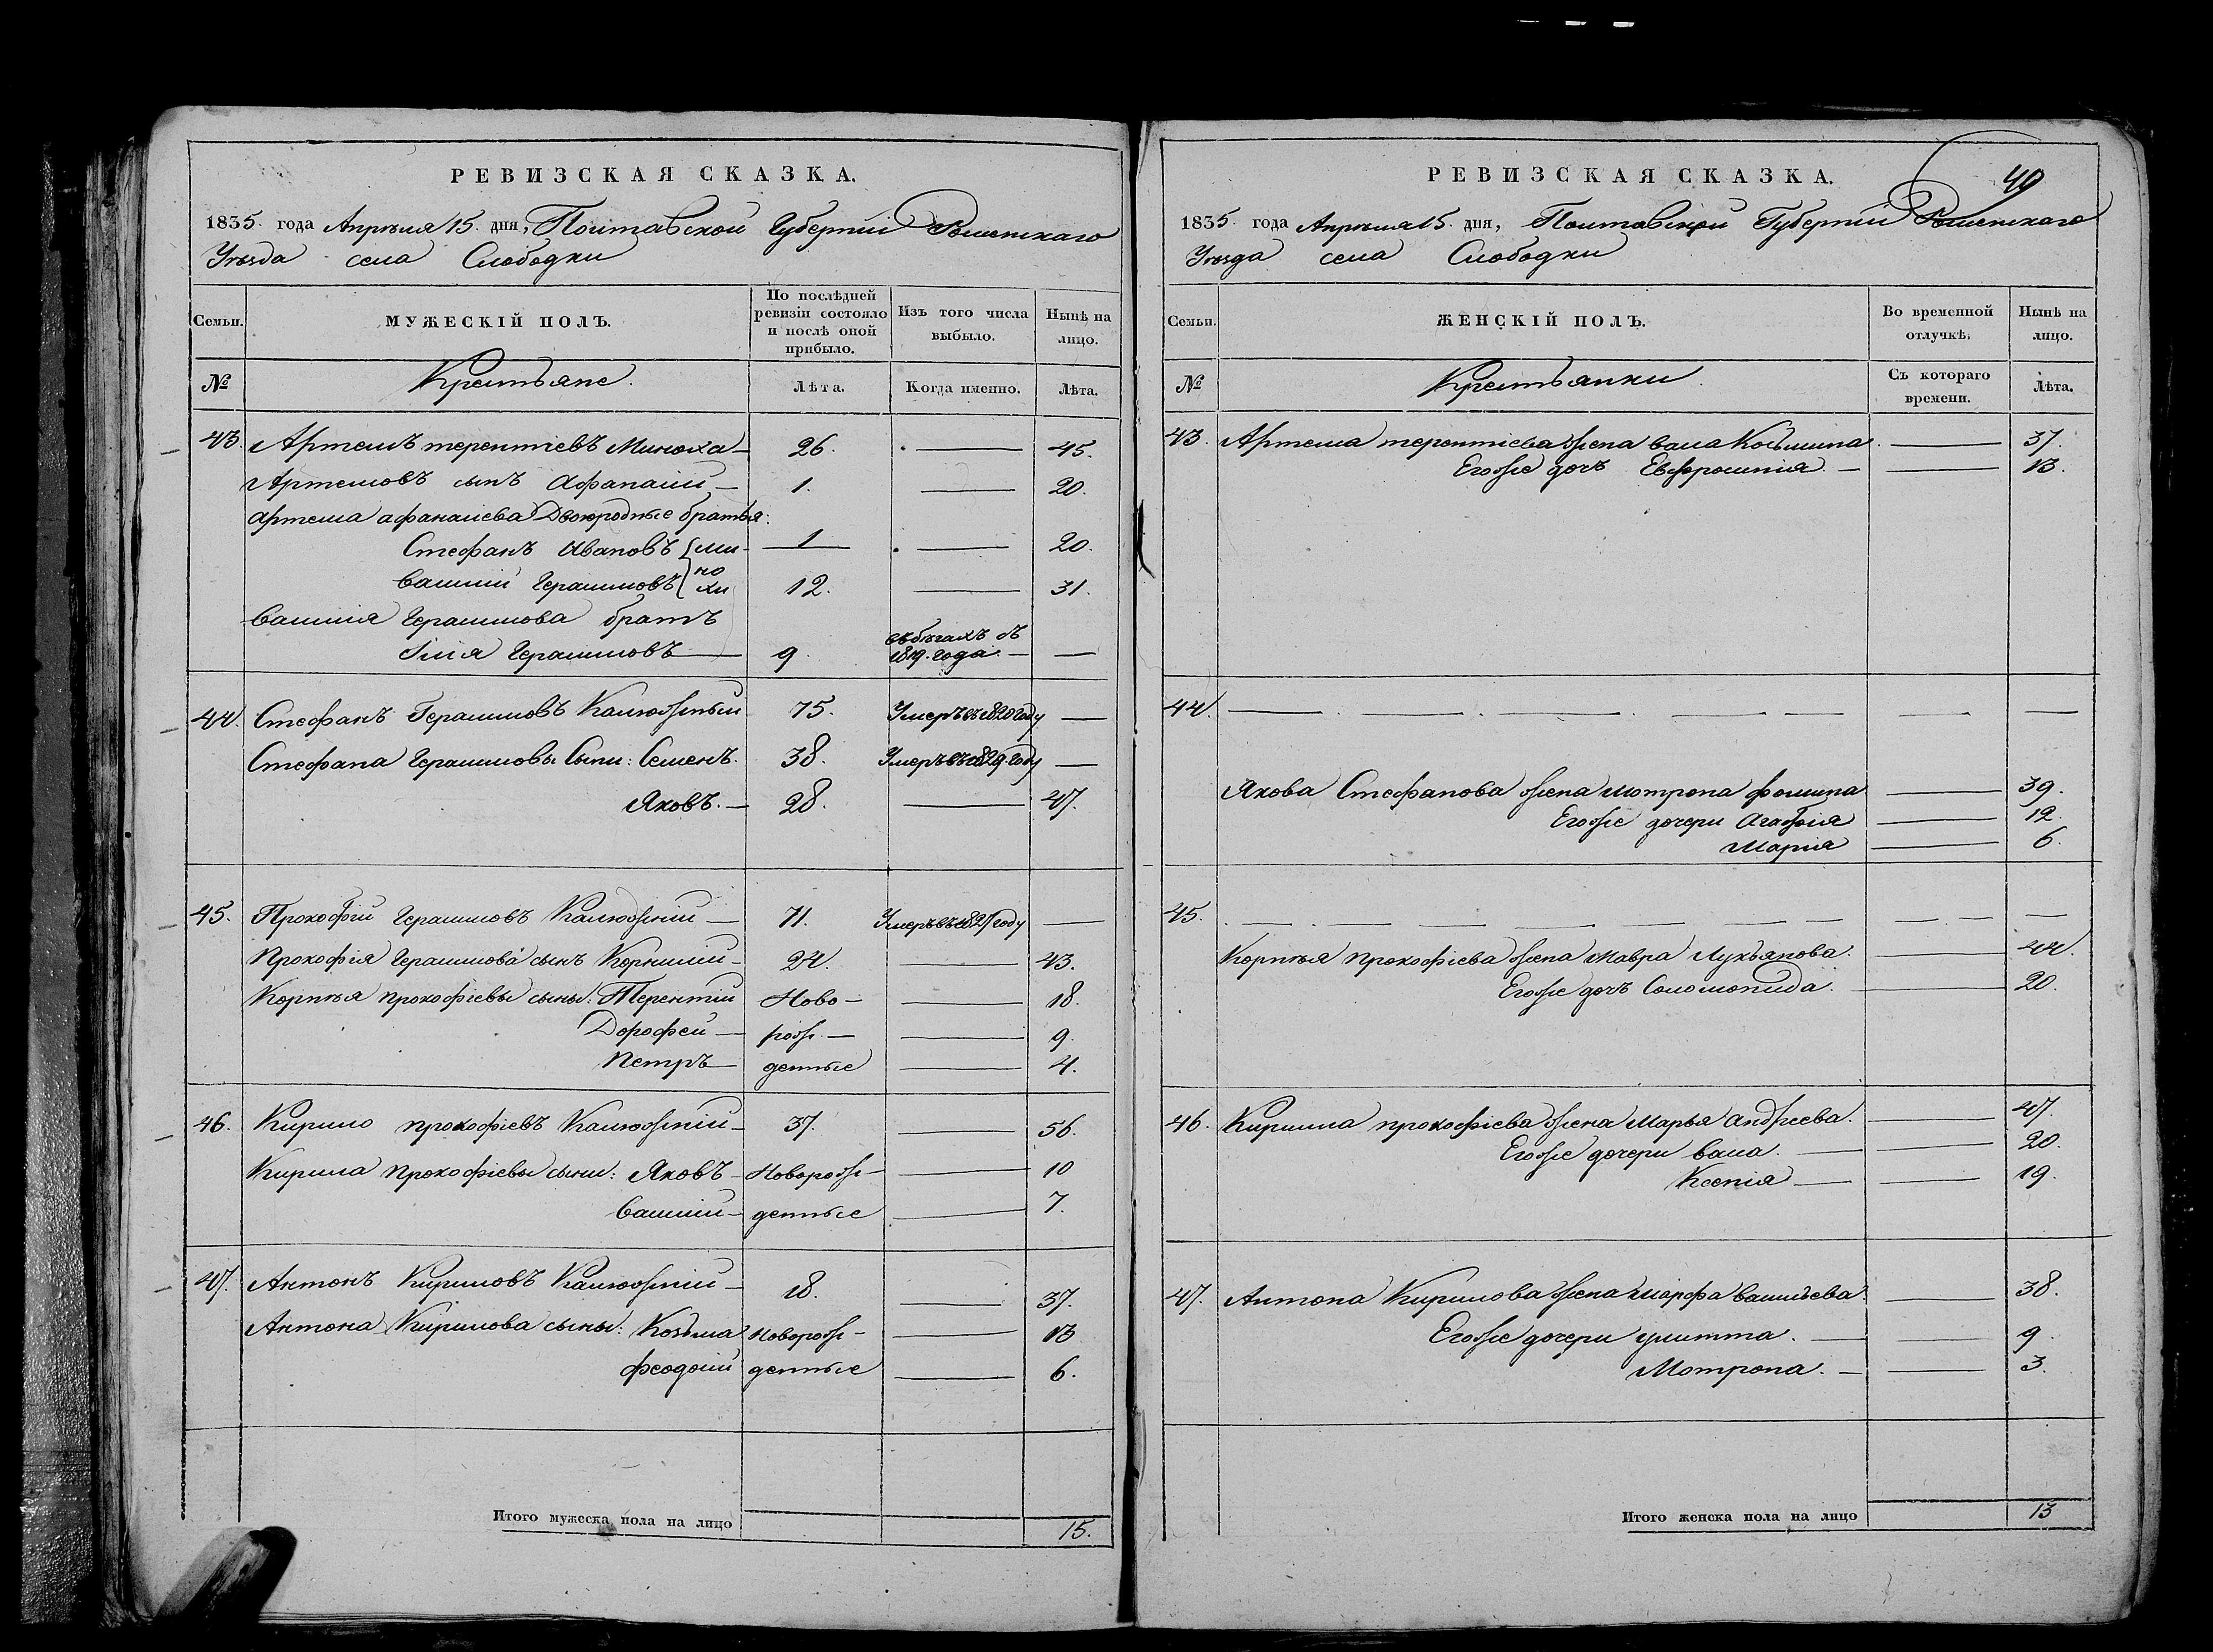 РЕВИЗСКАЯ СКАЗКА.
1835. года Апрѣля 15. дня, Полтавской Губерніи Роменскаго
Уѣзда села Слободки
Семьи. МУЖЕСКІЙ ПОЛЪ. По послѣдней ревизіи состояло и послѣ оной прибыло. Изъ того числа выбыло. Нынѣ на лицо.
№ Крестьяне. Лѣта. Когда именно. Лѣта.
43. Артемъ терентіевъ Минюха — 26. — 45.
Артемовъ сынъ Афанасій — 1. — 20.
Артема афанасіева Двоюродные братья:
Стефанъ Ивановъ { Ми- 1 — 20.
Василій Герасимовъ { ню хи 12. — 31.
Василія Герасимова братъ
Илія Герасимовъ — 9. въ бѣгахъ съ 1819. года. — —
44. Стефанъ Герасимовъ Калюжный 75. Умеръ въ 1820 году —
Стефана Герасимова Сыны: Семенъ. 38. Умеръ въ 1829. году —
Яковъ. — 28. — 47.
45. Прокофій Герасимовъ Калюжній — 71. Умеръ въ 1821 году —
Прокофія Герасимова сынъ Корнилій — 24. — 43.
Корнѣя прокофіевы сыны: Терентій Ново- — 18.
Дорофей — рож- — 9.
Петръ — денные — 4.
46. Кирило прокофіевъ Калюжній — 37. — 56.
Кирила Прокофіевы сыны: Яковъ — Новорож- — 10
Василій — денные — 7.
47. Антонъ Кириловъ Калюжній — 18. — 37.
Антона Кирилова сыны: Козьма новорож- — 13
феодосій денные — 6.
Итого мужеска пола на лицо 15.
49
РЕВИЗСКАЯ СКАЗКА.
1835. года Апрѣля 15. дня, Полтавской Губерніи Роменскаго
Уѣзда села Слободки
Семьи. ЖЕНСКІЙ ПОЛЪ. Во временной отлучкѣ. Нынѣ на лицо.
№ Крестьянки. Съ котораго времени. Лѣта.
43. Артема терентіева жена васа Козьмина — 37.
Егоже дочь Евфросинія. — — 13.
44. — — — — — — —
Якова Стефанова жена мотрона фомина — 39.
Егоже дочери Агафія — 12.
Марія — 6.
45. — — — — — — —
Корнѣя прокофіева жена мавра Лукьянова. — 44.
Егоже дочь Соломонида. — 20.
46. Кирила прокофіева жена Марья Андреева. — 47.
Егоже дочери васа. — — 20.
Ксенія — — 19.
47. Антона Кирилова жена марфа васильева — 38.
Егоже дочери улитта. — — 9.
Мотрона. — — 3.
Итого женска пола на лицо 13